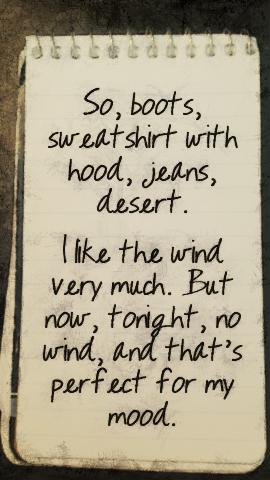 So, boots,
sweatshirt with
hood, jeans,
desert.
I like the wind
very much. But
now, tonight, no
wind, and that's
perfect for my
mood.